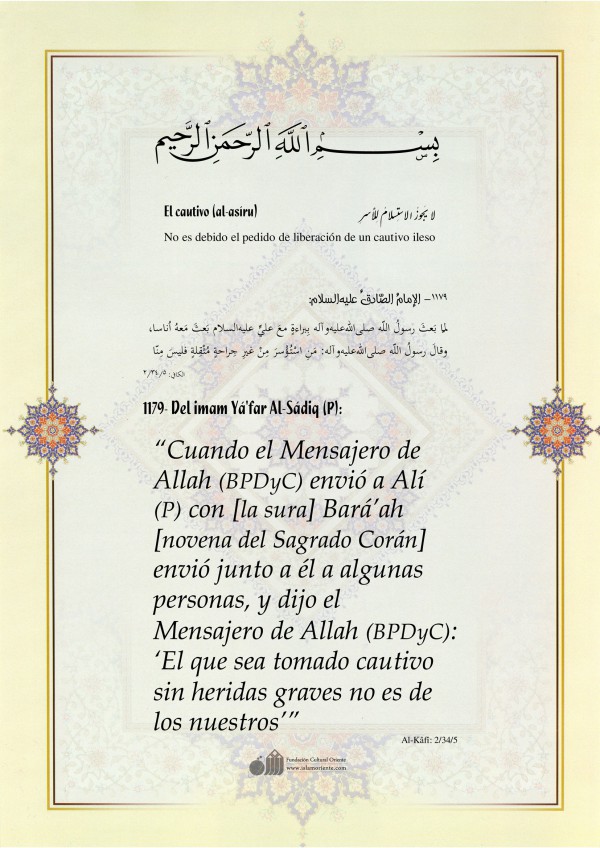 بِسْمِ ٱللَّهِ ٱلرَّحْمَٰنِ ٱلرَّحِيمِ
El cautivo (al-asíru) لا يَجُوزُ الاستِسلامُ للأسر
No es debido el pedido de liberación de un cautivo ileso
١١٧٩- الإمامُ الصّادقُ عليه‌السلام:
لما بَعثَ رَسولُ اللّه صلى‌الله‌عليه‌وآله بِبراءةٍ معَ عليٍّ عليه‌السلام بَعثَ مَعهُ أُناسا،
وقالَ رسولُ اللّه صلى‌الله‌عليه‌وآله: مَنِ اسْتُؤسرَ مِنْ غَيرِ جراحةٍ مُثْقِلةٍ فليسَ مِنّا
الكافي: ٢/٣٤/٥
1179- Del imam Yá'far Al-Sádiq (P):
“Cuando el Mensajero de
Allah (BPDyC) envió a Alí
(P) con [la sura] Bará’ah
[novena del Sagrado Corán]
envió junto a él a algunas
personas, y dijo el
Mensajero de Allah (BPDyC):
‘El que sea tomado cautivo
sin heridas graves no es de
los nuestros’”
Al-Kâfî: 2/34/5
Fundación Cultural Oriente
www.islamoriente.com